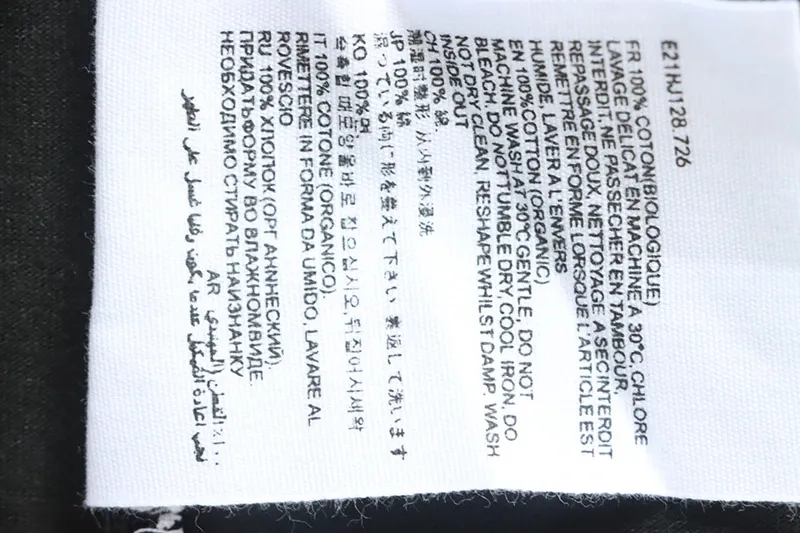 E21HJ128.726
FR 100% COTON(BIOLOGIQUE)
LAVAGE DÉLICAT EN MACHINE À 30°C, CHLORE
INTERDIT, NE PAS SECHER EN TAMBOUR,
REPASSAGE DOUX, NETTOYAGE A SEC INTERDIT
REMETTRE EN FORME LORSQUE L'ARTICLE EST
HUMIDE, LAVER A L'ENVERS
EN 100%COTTON (ORGANIC)
MACHINE WASH AT 30°C GENTLE, DO NOT
BLEACH, DO NOT TUMBLE DRY, COOL IRON, DO
NOT DRY CLEAN, RESHAPE WHILST DAMP. WASH
INSIDE OUT
CH 100% 綿.
潮湿时整形 从内到外浸洗
JP 100% 綿
湿っている内に形を整えて下さい 裏返して洗います
KO 100%면
수축할 때 모양을 바로 잡으십시오, 뒤집어서 세탁
IT 100% COTONE (ORGANICO).
RIMETTERE IN FORMA DA UMIDO, LAVARE AL
ROVESCIO
RU 100% ХЛОПОК (ОРГАННЧЕСКИЙ).
ПРИДАТЬ ФОРМУ ВО ВЛАЖНОМ ВИДЕ.
НЕОБХОДИМО СТИРАТЬ НАИЗНАНКУ
AR